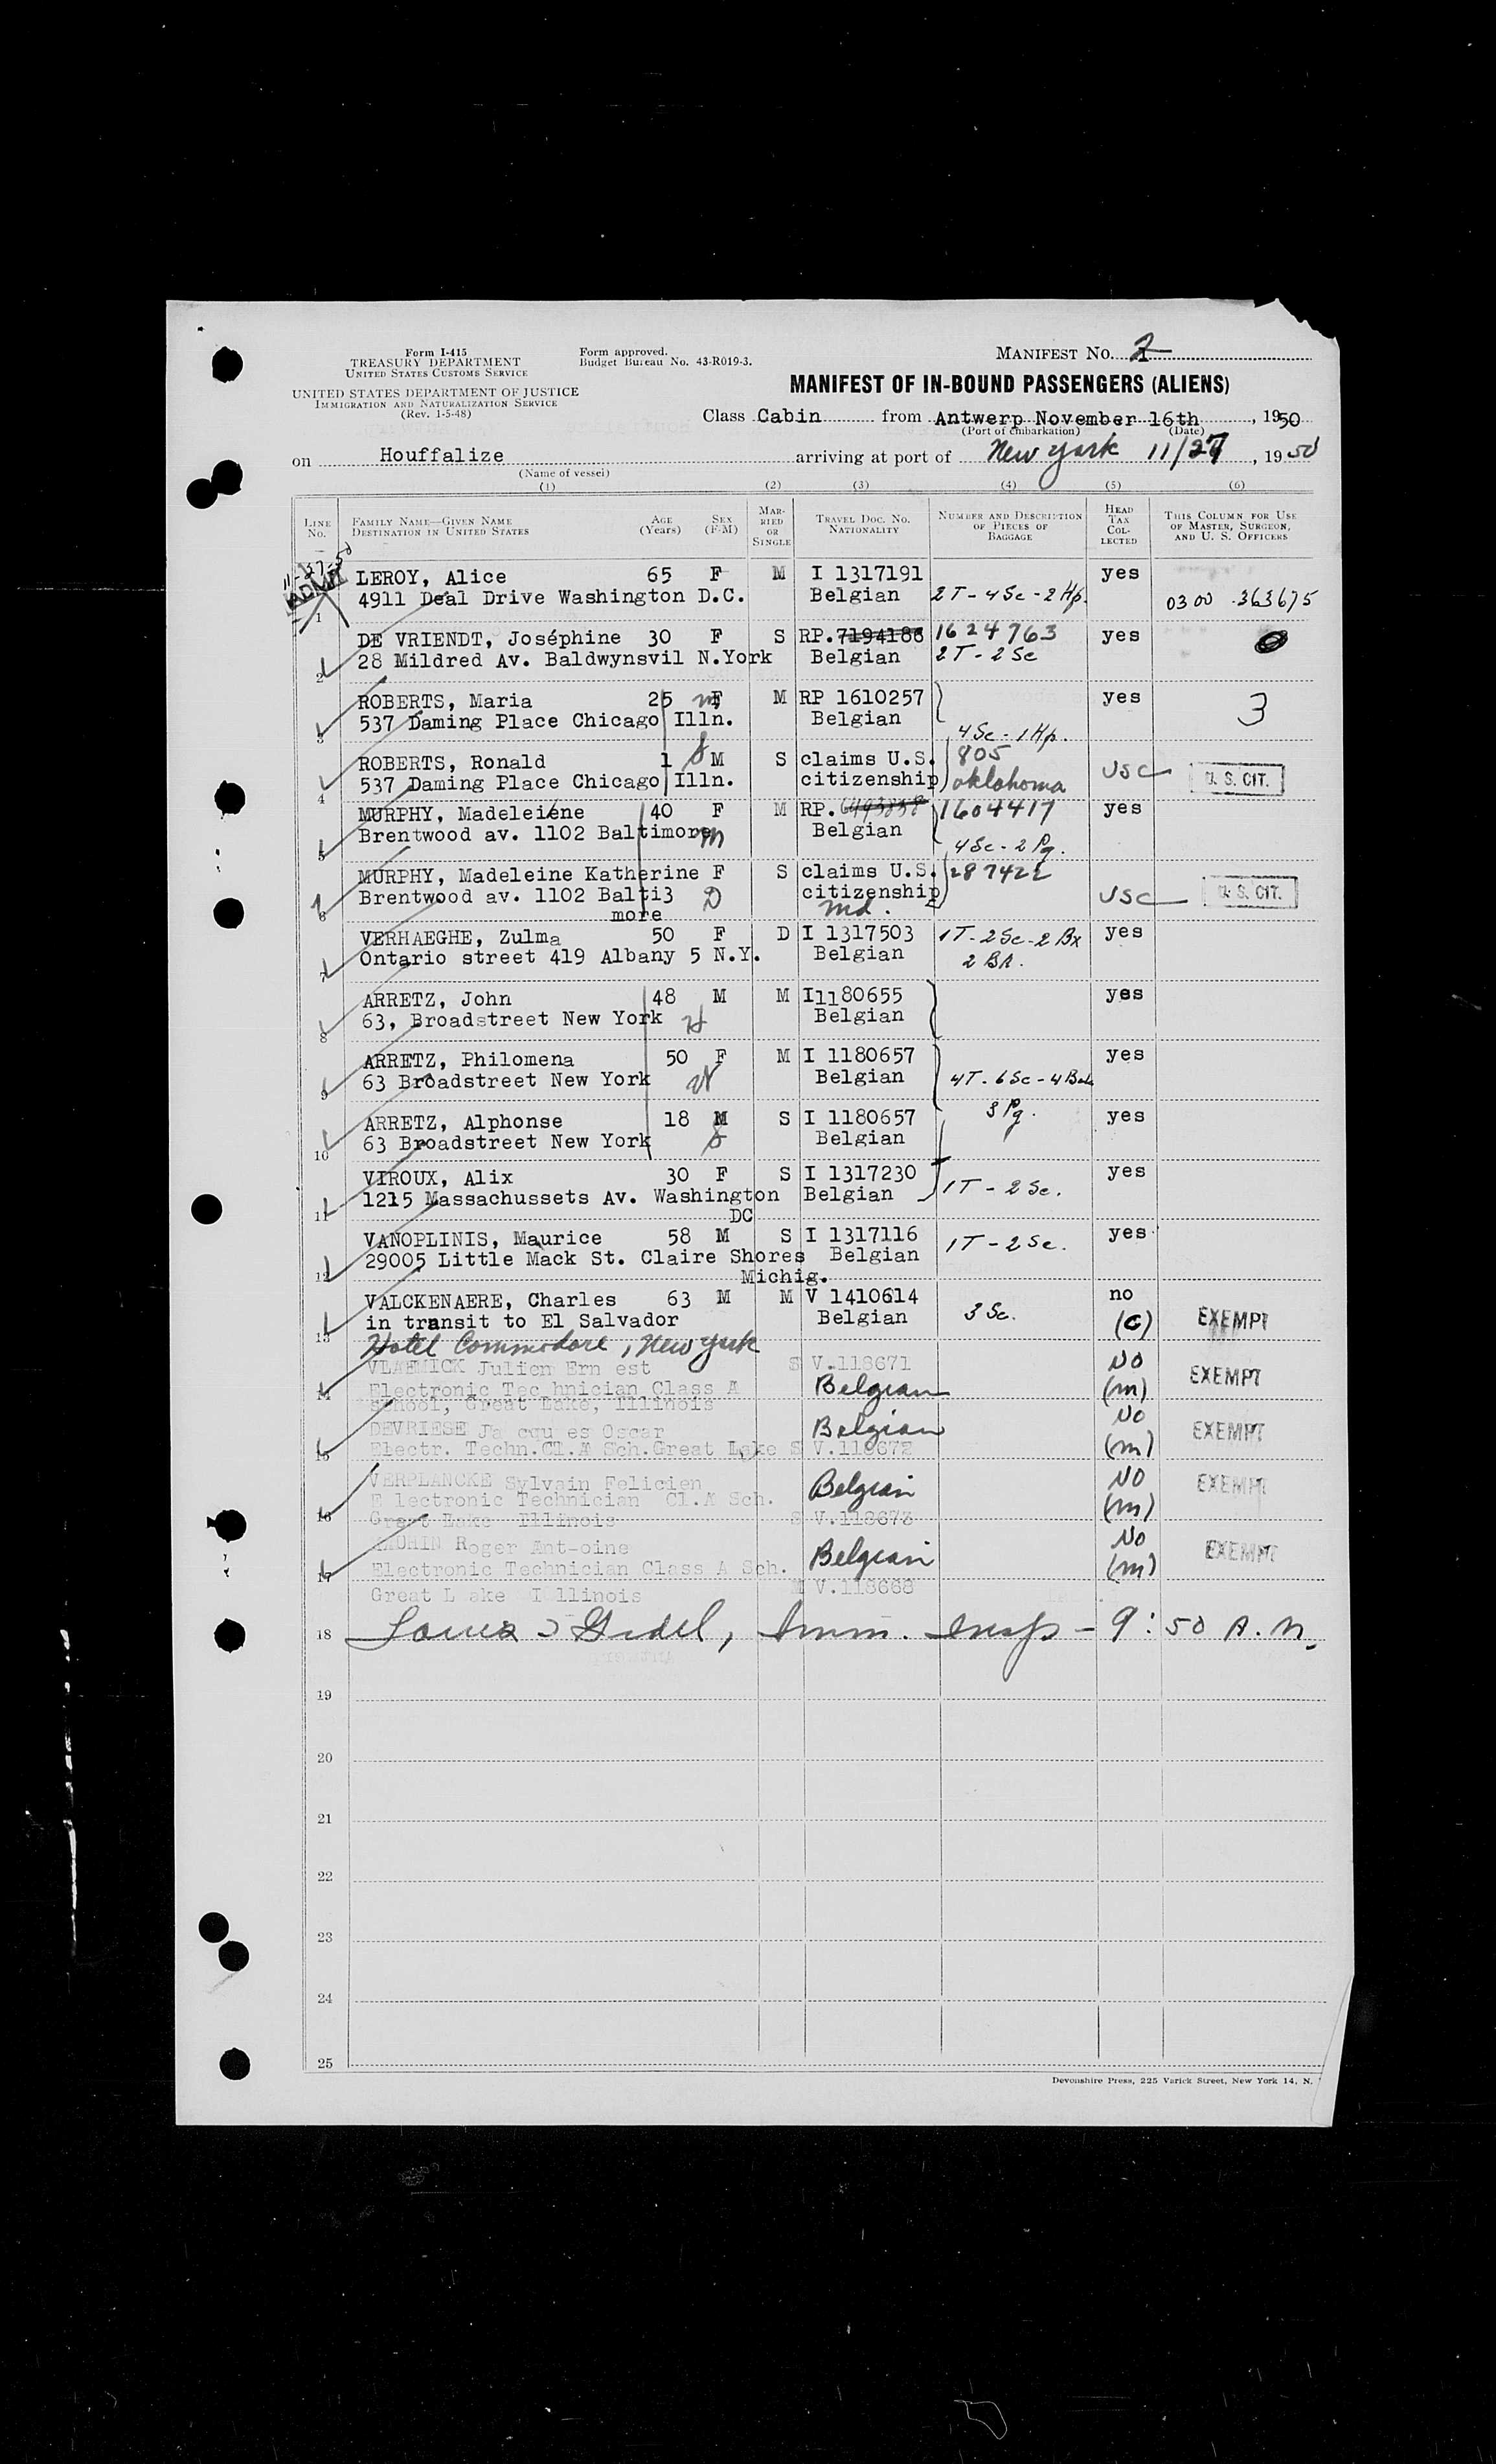 Form I-415
TREASURY DEPARTMENT
UNITED STATES CUSTOMS SERVICE
Form approved.
Budget Bureau No. 43-R019-3.
MANIFEST NO. 2
UNITED STATES DEPARTMENT OF JUSTICE
IMMIGRATION AND NATURALIZATION SERVICE
(Rev. 1-5-48)
MANIFEST OF IN-BOUND PASSENGERS (ALIENS)
Class Cabin from Antwerp November 16th, 1950
(Port of embarkation) (Date)
on Houffalize arriving at port of New York 11/27, 1950
(Name of vessel)
(1) (2) (3) (4) (5) (6)
LINE NO. FAMILY NAME—GIVEN NAME DESTINATION IN UNITED STATES AGE (Years) SEX (F-M) MARRIED OR SINGLE TRAVEL DOC. NO. NATIONALITY NUMBER AND DESCRIPTION OF PIECES OF BAGGAGE HEAD TAX COLLECTED THIS COLUMN FOR USE OF MASTER, SURGEON, AND U. S. OFFICERS
11-27-50
ADMIT
LEROY, Alice 65 F M I 1317191 yes
1 4911 Deal Drive Washington D.C. Belgian 2T-4Sc-2Hp. 0300 363675
DE VRIENDT, Joséphine 30 F S RP.7194188 1624763 yes
2 28 Mildred Av. Baldwynsvil N.York Belgian 2T-2Sc
ROBERTS, Maria 25 F M RP 1610257 yes 3
3 537 Daming Place Chicago Illn. Belgian 4Sc-1Hp.
ROBERTS, Ronald 1 M S claims U.S. 805 USC U. S. CIT.
4 537 Daming Place Chicago Illn. citizenship oklahoma
MURPHY, Madeleiéne 40 F M RP. 1604417 yes
5 Brentwood av. 1102 Baltimore m Belgian 4Sc-2Pg.
MURPHY, Madeleine Katherine F S claims U.S. USC U. S. CIT.
6 Brentwood av. 1102 Balti3 D citizenship
more Md.
VERHAEGHE, Zulma 50 F D I 1317503 1T-2Sc-2Bx yes
7 Ontario street 419 Albany 5 N.Y. Belgian
ARRETZ, John 48 M M I1180655 yes
8 63, Broadstreet New York H Belgian
ARRETZ, Philomena 50 F M I 1180657 yes
9 63 Broadstreet New York W Belgian 4T-6Sc-4
3 Pg.
ARRETZ, Alphonse 18 M S I 1180657 yes
10 63 Broadstreet New York Belgian
VIROUX, Alix 30 F S I 1317230 yes
11 1215 Massachussets Av. Washington Belgian 1T-2Sc.
DC
VANOPLINIS, Maurice 58 M S I 1317116 1T-2Sc. yes
12 29005 Little Mack St. Claire Shores Belgian
Michig.
VALCKENAERE, Charles 63 M M V 1410614 3 Sc. no
13 in transit to El Salvador Belgian (C) EXEMPT
Hotel Commodore, New York
VLAEMICK Julien Ern est S V.118671 No
14 Electronic Tec hnician Class A Belgian (m) EXEMPT
school, Great Lake, Illinois
DEVRIESE Ja cqu es Oscar Belgian No EXEMPT
15 Electr. Techn.Cl.A Sch.Great Lake S V.118672 (m)
VERPLANCKE Sylvain Felicien Belgian No EXEMPT
16 E lectronic Technician Cl.A Sch. (m)
Great Lake Illinois S V.118673
Roger Ant-oine Belgian No EXEMPT
17 Electronic Technician Class A Sch. (m)
Great L ake I llinois M V.118668
18 Imm. Insp - 9:50 A.M.
19
20
21
22
23
24
25
Devonshire Press, 225 Varick Street, New York 14, N.